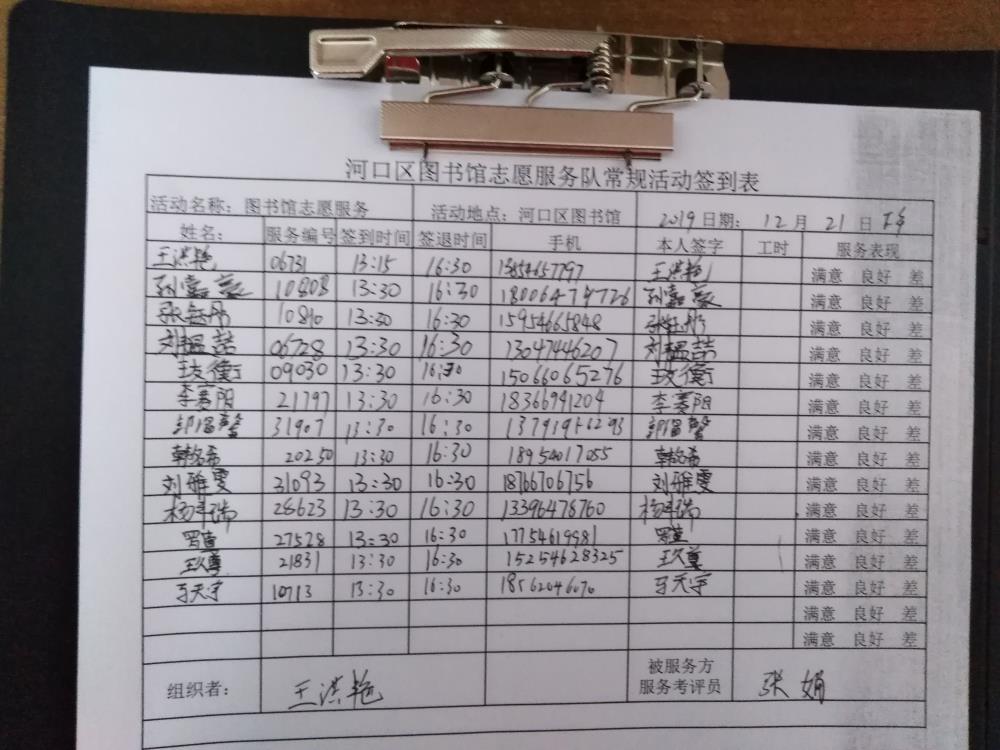 河口区图书馆志愿服务队常规活动签到表
活动名称：图书馆志愿服务 活动地点：河口区图书馆 2019 日期： 12 月 21 日 下午
姓名： 服务编号 签到时间 签退时间 手机 本人签字 工时 服务表现
王洪艳 06731 13:15 16:30 13854657797 王洪艳 满意 良好 差
孙嘉 10808 13:30 16:30 18006474726 孙嘉 满意 良好 差
张钰彤 10810 13:30 16:30 15954665848 张钰彤 满意 良好 差
刘韫喆 06728 13:30 16:30 13047446207 刘韫喆 满意 良好 差
衡 09030 13:30 16:30 15066065276 衡 满意 良好 差
李赛阳 21797 13:30 16:30 18366941204 李赛阳 满意 良好 差
31907 13:30 16:30 满意 良好 差
韩 20250 13:30 16:30 18954017055 韩 满意 良好 差
刘雅雯 31093 13:30 16:30 18766706756 刘雅雯 满意 良好 差
杨 瑞 28623 13:30 16:30 13396478760 杨 瑞 满意 良好 差
27528 13:30 16:30 17754619981 满意 良好 差
王久尊 21831 13:30 16:30 15254628325 王久尊 满意 良好 差
于天宇 10713 13:30 16:30 18562046070 于天宇 满意 良好 差
满意 良好 差
满意 良好 差
组织者： 王洪艳 被服务方 张娟
服务考评员